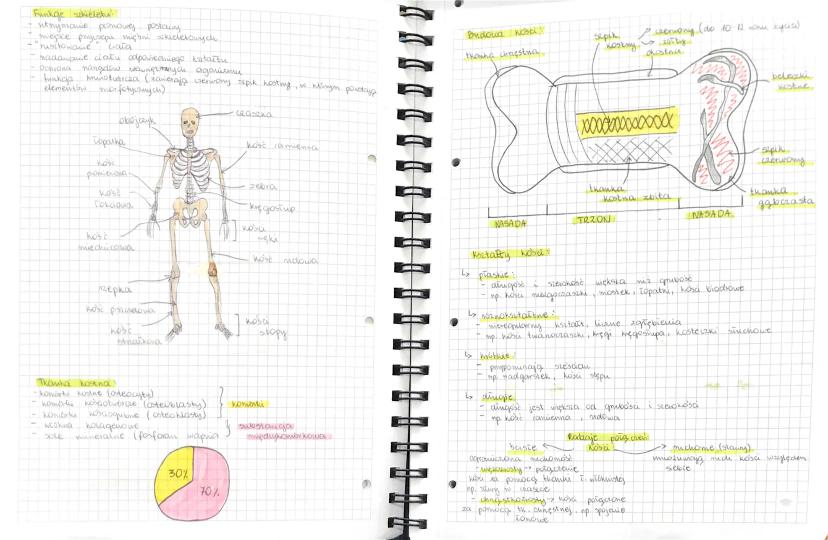 Funkcje szkieletu
- utrzymanie pionowej postawy
- miejsce przyczepu mięśni szkieletowych
- "rusztowanie" ciała
- nadawanie ciału odpowiedniego kształtu
- ochrona narządów wewnętrznych organizmu
- funkcja krwiotwórcza (zawierają czerwony szpik kostny, w którym powstają
elementów morfotycznych)
czaszka
obojczyk
łopatka
kość ramienna
kość
promieniowa
żebra
kość
łokciowa
kręgosłup
kość
miednicowa
kości
ręki
kość udowa
rzepka
kość piszczelowa
kość
strzałkowa
kości
stopy
Tkanka kostna
- komórki kostne (osteocyty)
- komórki kościotwórcze (osteoblasty)
- komórki kościogubne (osteoklasty)
komórki
- włókna kolagenowe
- sole mineralne (fosforan wapnia)
substancja
międzykomórkowa
30%
70%
Budowa kości:
tkanka chrzęstna
szpik
kostny
czerwony (do 10-12 roku życia)
żółty
okostna
beleczki
kostne
szpik
czerwony
tkanka
gąbczasta
tkanka
kostna zbita
NASADA
TRZON
NASADA
Kształty kości:
↳ płaskie:
- długość i szerokość większa niż grubość
- np. kości mózgoczaszki, mostek, łopatki, kości biodrowe
↳ różnokształtne:
- nieregularny kształt, liczne zgłębienia
- np. kości twarzoczaszki, kręgi kręgosłupa, kosteczki słuchowe
↳ krótkie:
- przypominają sześcian
- np. nadgarstek, kości stępu
↳ długie:
- długość jest większa od grubości i szerokości
- np. kość ramienna, udowa
Rodzaje połączeń
kości
ścisłe
ruchome (stawy)
ograniczona ruchomość
umożliwiają ruch kości względem
siebie
- więzozrosty → połączenie
kości za pomocą tkanki ł. włóknistej
np. szwy w czaszce
- chrząstkozrosty → kości połączone
za pomocą tk. chrzęstnej, np. spojenie
łonowe